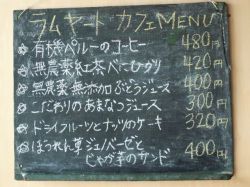 ラムヤート カフェMENU
有機ペルーのコーヒー 480円
無農薬紅茶べにひかり 420円
無農薬無添加ぶどうジュース 400円
こだわりのあまなつジュース 300円
ドライフルーツとナッツのケーキ 320円
ほうれん草ジェノベーゼと
じゃが芋のサンド 400円